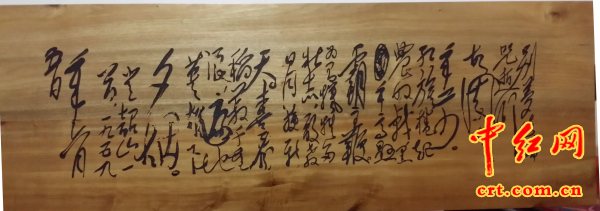 别梦依稀
咒逝川
故园
红旗卷起
农奴戟黑
手高悬
霸主鞭
为有牺牲多
壮志敢教
日月换新
天喜看
稻菽千重
浪遍地
英雄下
夕烟。
一九五九
年六月
中红网
crt.com.cn